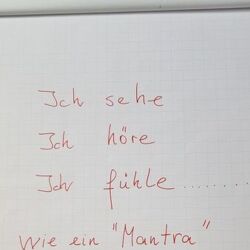 Ich sehe
Ich höre
Ich fühle..........
Wie ein "Mantra"